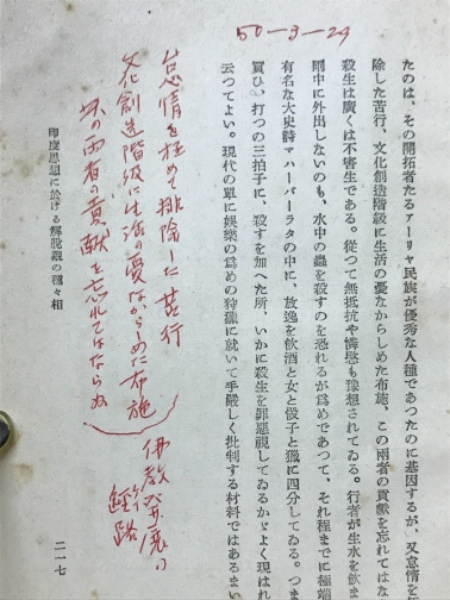 50-3-29
たのは、その開拓者たるアーリヤ民族が優秀な人種であつたのに基因するが、又怠情を
除した苦行、文化創造階級に生活の憂なからしめた布施、この兩者の貢獻を忘れてはな
殺生は廣くは不害生である。從つて無抵抗や憐愍も豫想されてゐる。行者が生水を飮ま
期中に外出しないのも、水中の蟲を殺すのを恐れるが爲めであつて、それ程までに極端
有名な大史詩マハーバーラタの中に、放逸を飮酒と女と骰子と獵に四分してゐる。つま
買ひ、打つの三拍子に、殺すを加へた所、いかに殺生を罪惡視してゐるかゞよく現はれ
云つてよい。現代の單に娯樂の爲めの狩獵に就いて手嚴しく批判する材料ではあるまい
怠情を極めて排除した苦行
文化創造階級に生活の憂なからしめた布施
此の兩者の貢獻を忘れてはならぬ
佛教発展の
経路
印度思想に於ける解脱觀の種々相
二一七